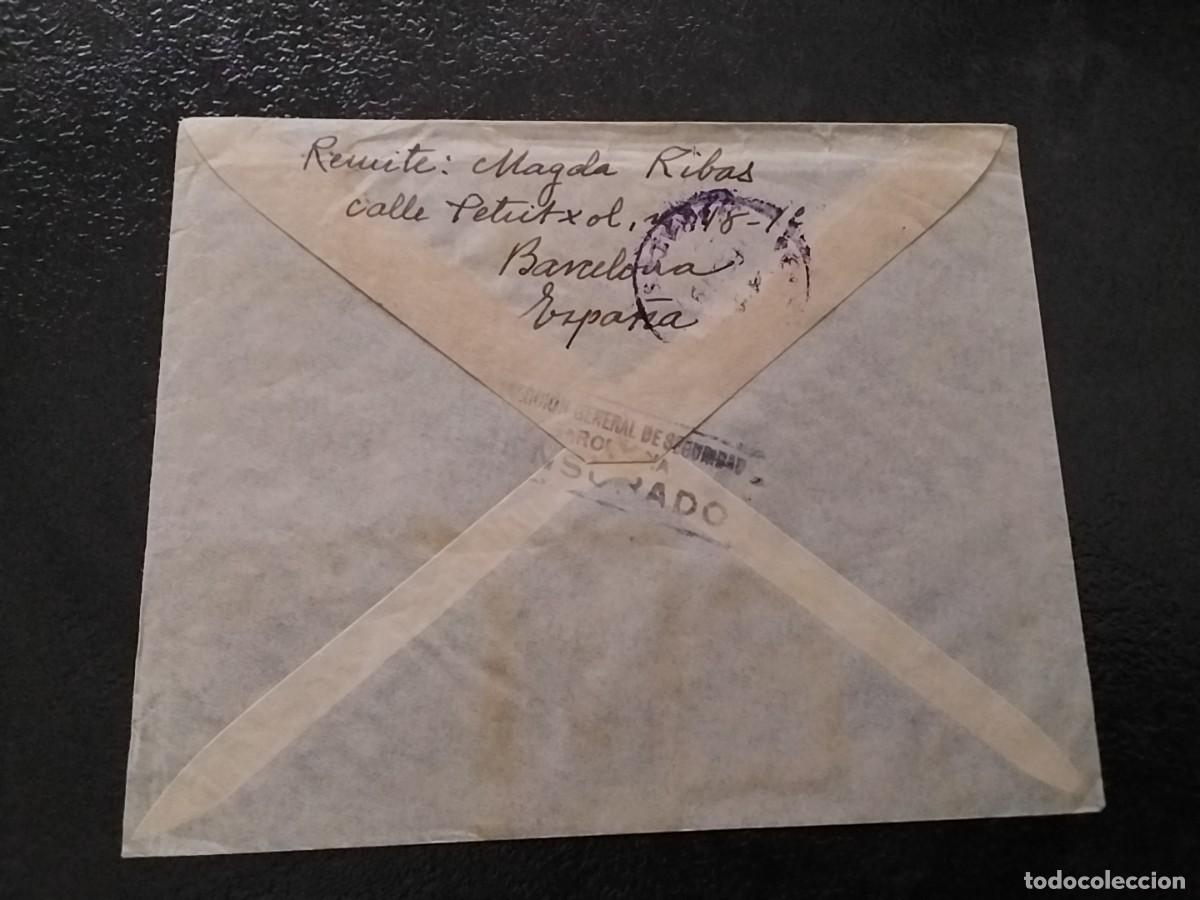 Remite: Magda Ribas
calle Petritxol, nº 18-1º
Barcelona
España
GENERAL DE SEGURIDAD
todocoleccion